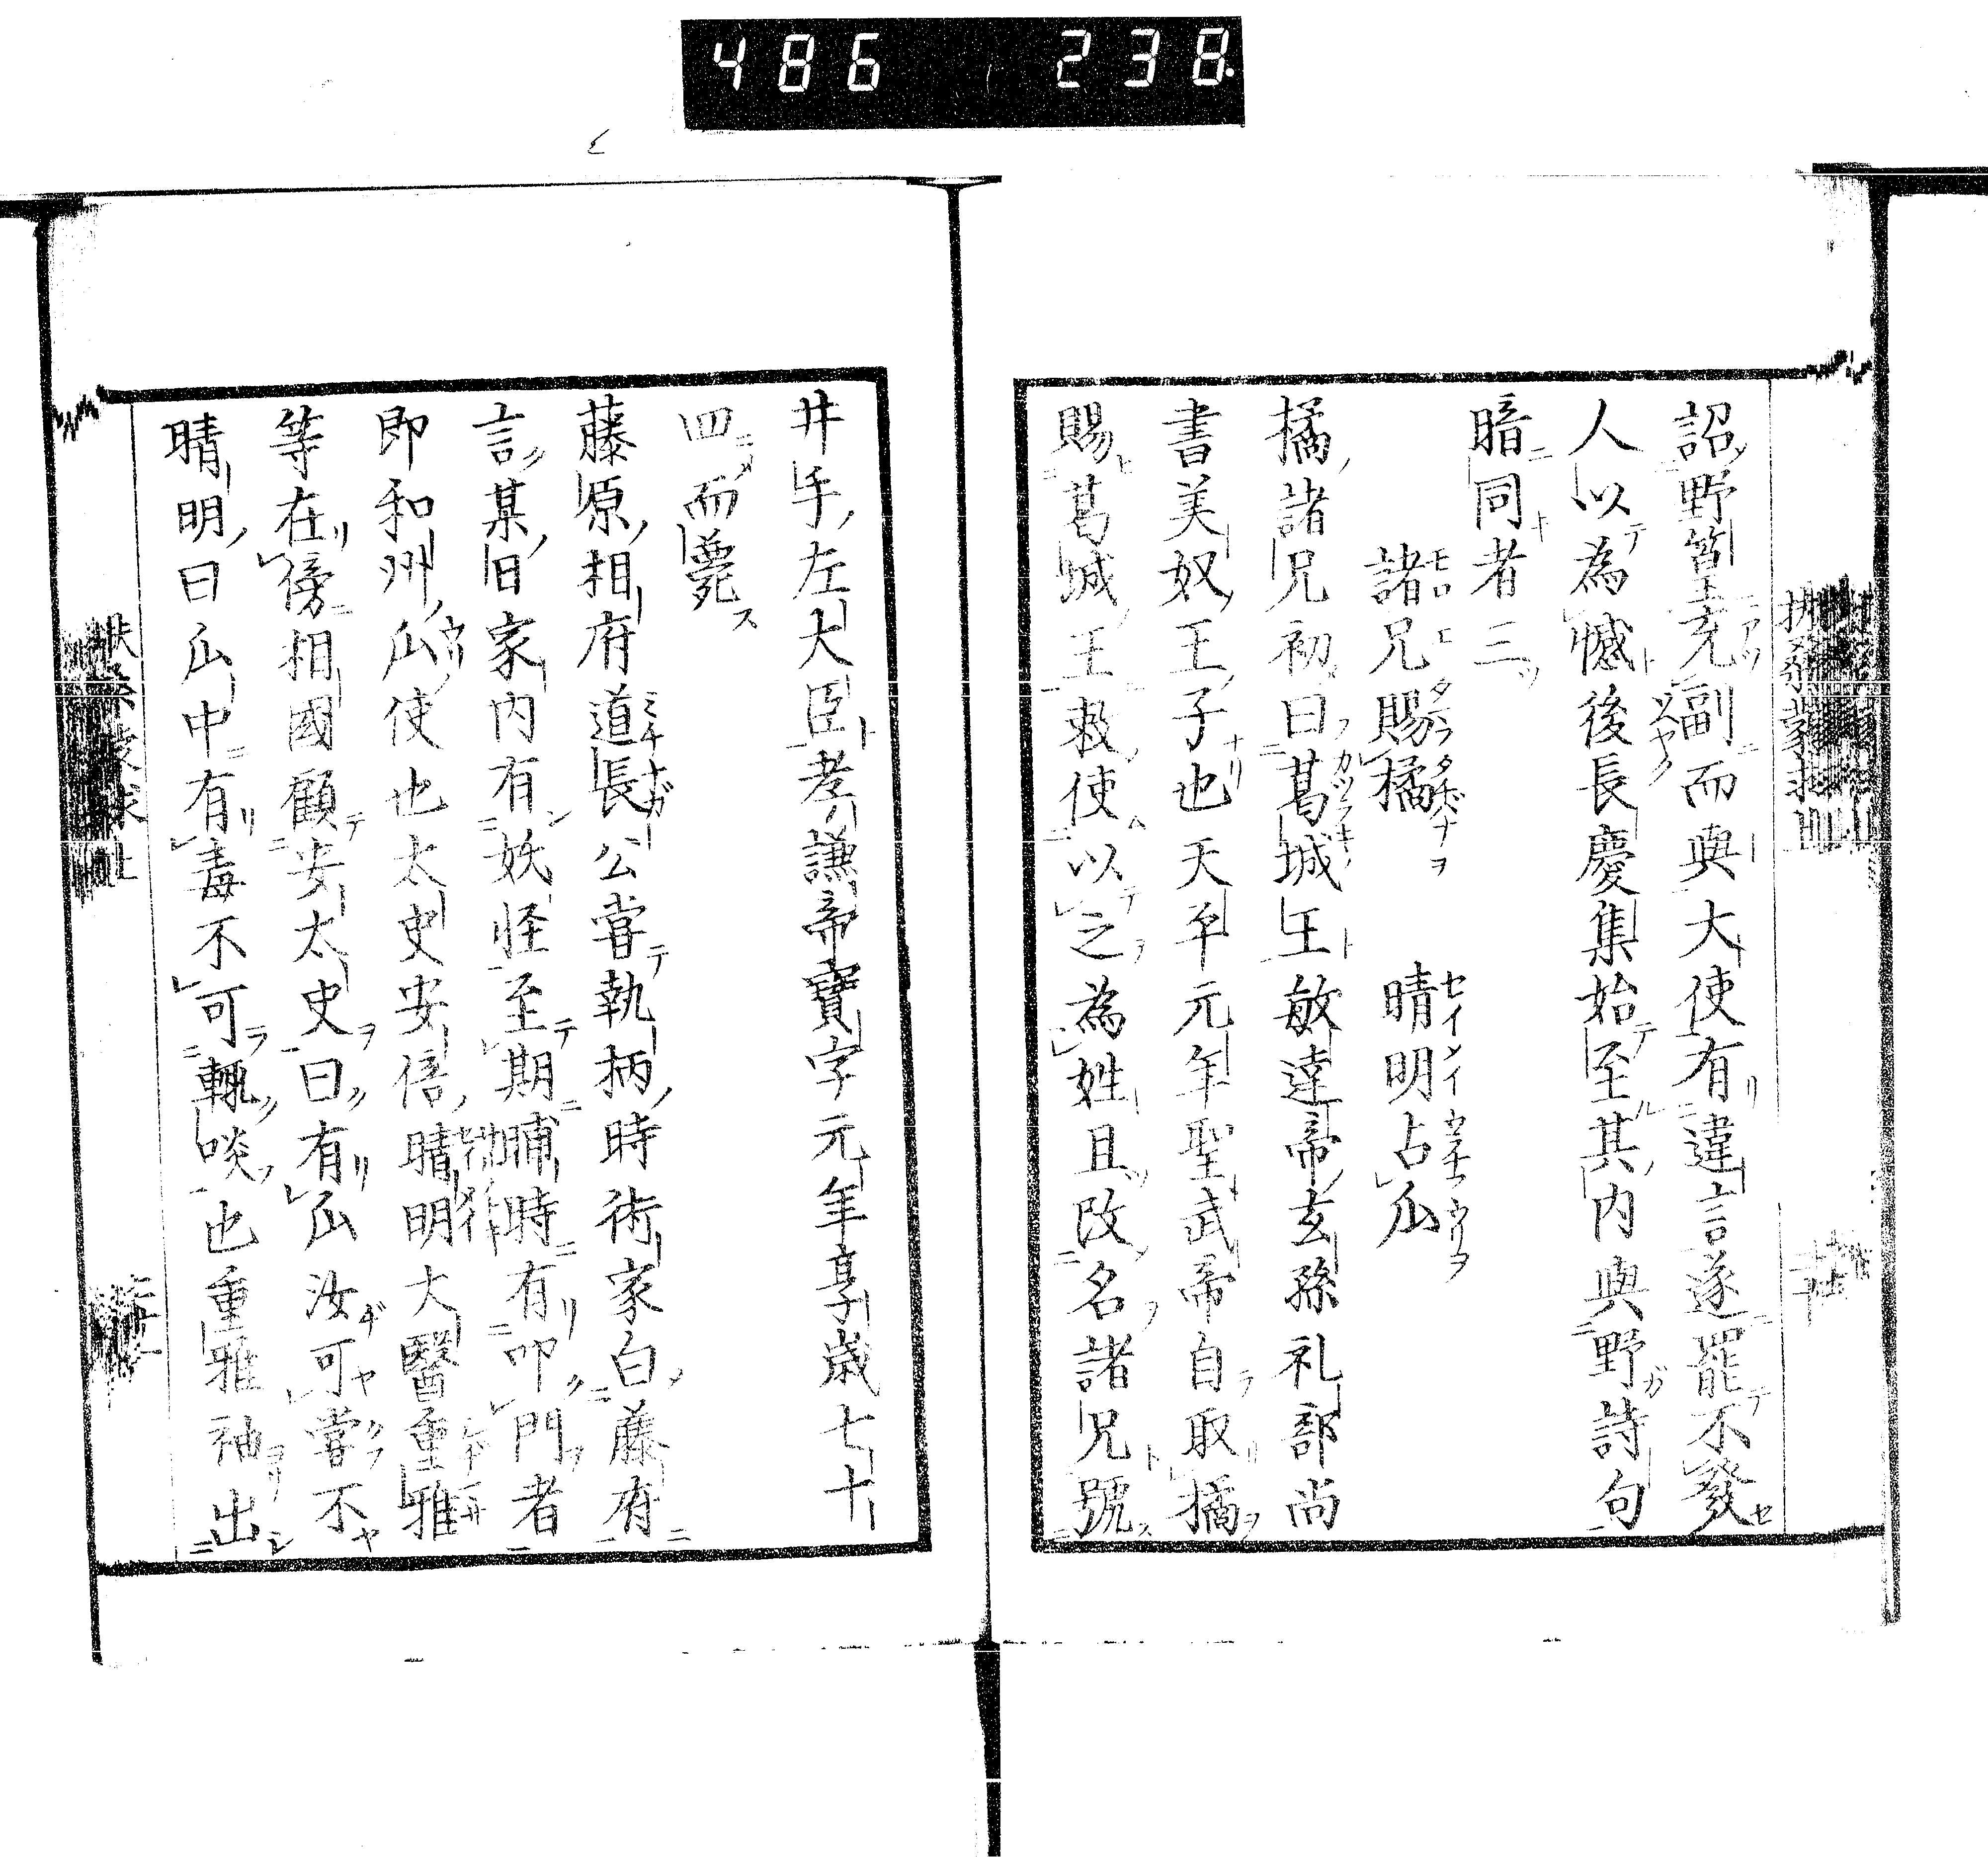 486 238
詔野篁充副而與大使有違言遂罷不發
人以為憾後長慶集始至其内與野詩句
暗同者三
諸兄賜橘 晴明占瓜
橘諸兄初曰葛城王敏達帝玄孫礼部尚
書美奴王子也天平元年聖武帝自取橘
賜葛城王敕使以之為姓且改名諸兄號
井手左大臣孝謙帝寶字元年享歳七十
四而薨
藤原相府道長公嘗執柄時術家白藤有
言某日家内有妖怪至期晡時有叩門者
即和州瓜使也太史安倍晴明大醫重雅
等在傍相國顧安太史曰有瓜汝可嘗不
晴明曰瓜中有毒不可輙啖也重雅袖出